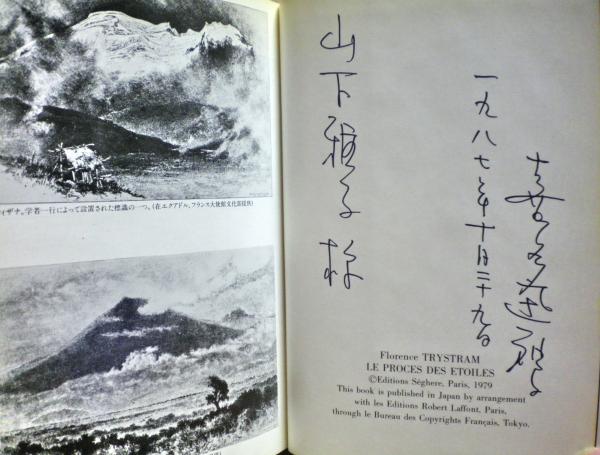 ィザナ。学者一行によって設置された標識の一つ。(在エクアドル、フランス大使館文化部提供)
山下雅子様
一九八七年十月二十九日
喜多迅鷹
Florence TRYSTRAM
LE PROCES DES ETOILES
©Editions Séghere, Paris, 1979
This book is published in Japan by arrangement
with les Editions Robert Laffont, Paris,
through le Bureau des Copyrights Français, Tokyo.